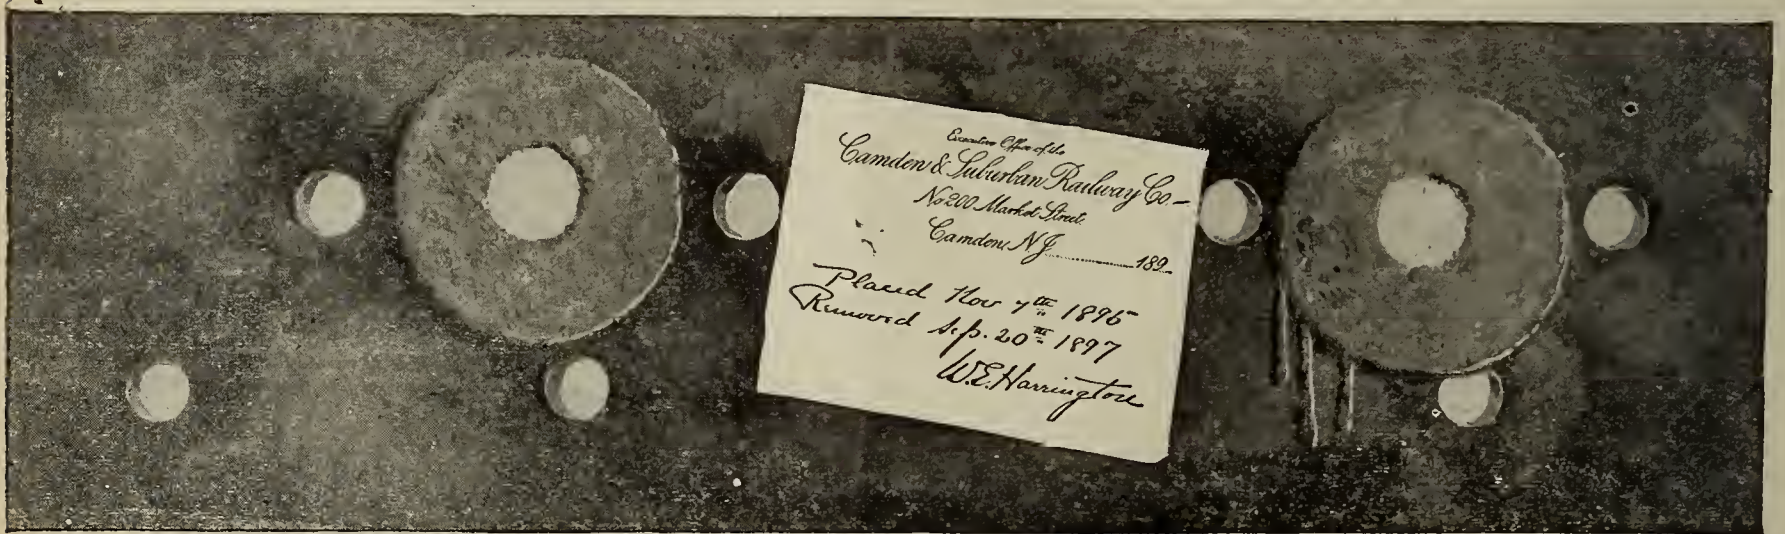 Executive Office of the
Camden & Suburban Railway Co.–
No 200 Market Street.
Camden, N.J. ............ 189
Placed Nov 7th 1895
Removed Sep. 20th 1897
W.E. Harrington